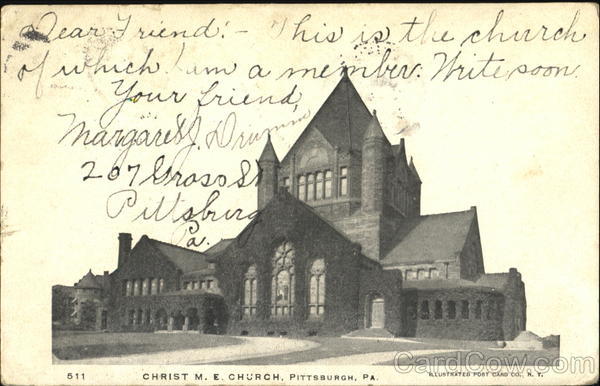 Dear Friend:- This is the church
of which I am a member. Write soon
Your friend,
Margaret J. Drumm
207 Gross St
Pittsburg
Pa.
511 CHRIST M. E. CHURCH, PITTSBURGH, PA. ILLUSTRATED POST CARD CO., N. Y.
CardCow.com